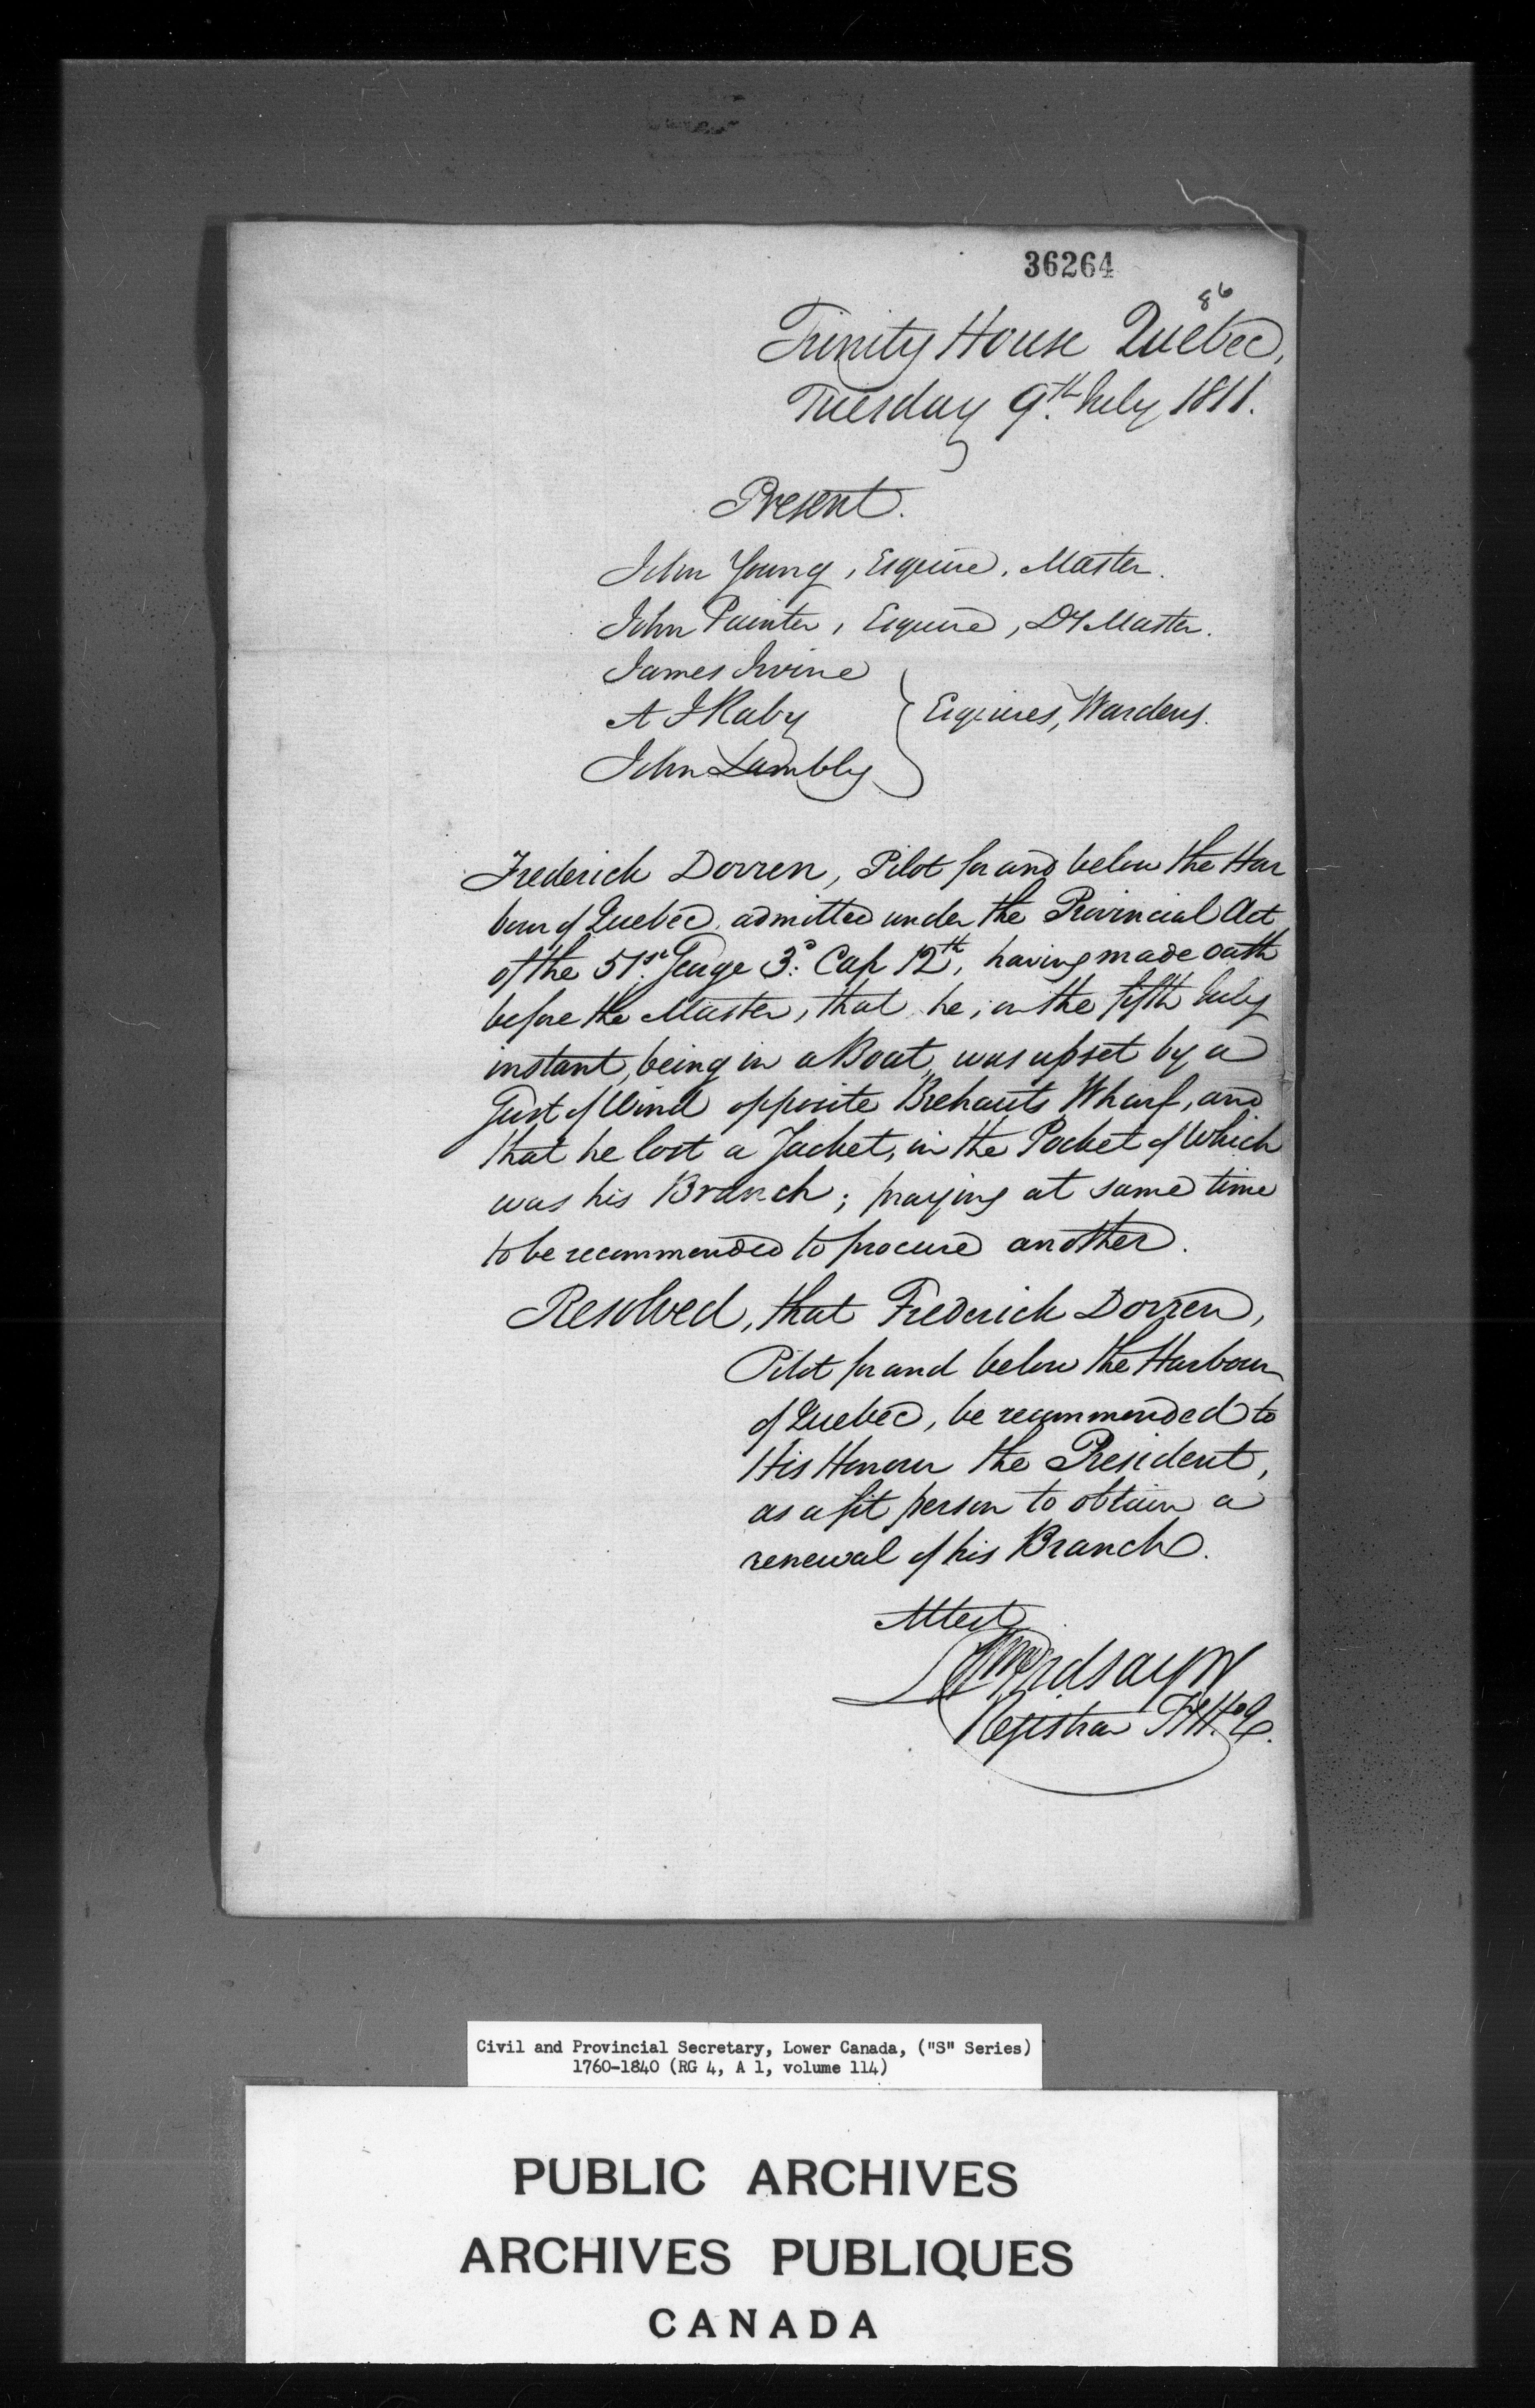 36264
86
Trinity House Quebec,
Tuesday 9th July 1811.
Present.
John Young, Esquire, Master.
John Painter, Esquire, Dy Master.
James Irvine
A J Raby } Esquires, Wardens.
John Lambly
Frederick Dorren, Pilot for and below the Har
bour of Quebec, admitted under the Provincial Act
of the 51st George 3d. Cap 12th, having made oath
before the Master, that he, on the fifth July
instant, being in a Boat, was upset by a
Gust of Wind opposite Brehauts Wharf, and
that he lost a Jacket, in the Pocket of which
was his Branch; praying at same time
to be recommended to procure another.
Resolved, that Frederick Dorren,
Pilot for and below the Harbour
of Quebec, be recommended to
His Honour the President,
as a fit person to obtain a
renewal of his Branch.
Attest
Wm Lindsay Jr
Registrar T. H. Q.
Civil and Provincial Secretary, Lower Canada, ("S" Series)
1760-1840 (RG 4, A 1, volume 114)
PUBLIC ARCHIVES
ARCHIVES PUBLIQUES
CANADA